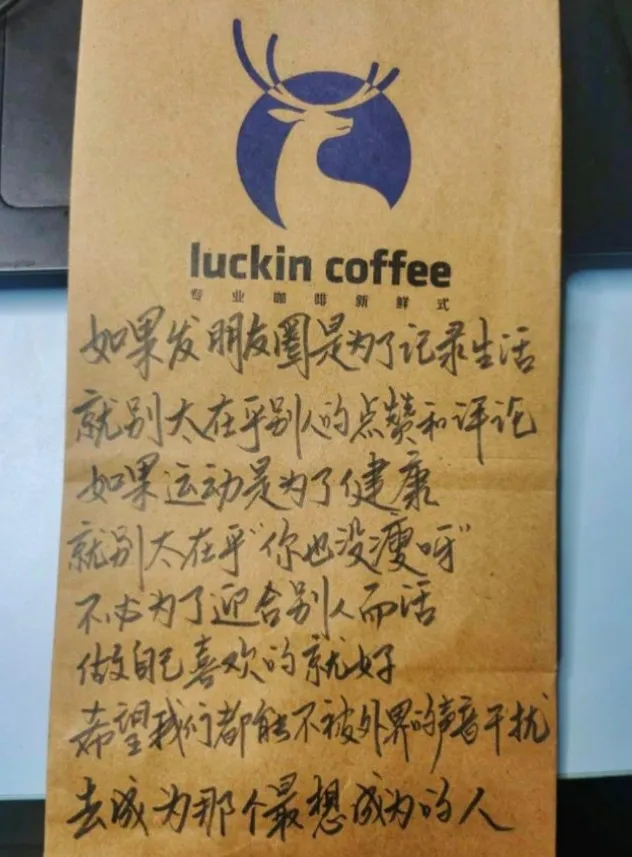 luckin coffee
专业咖啡新鲜式
如果发朋友圈是为了记录生活
就别太在乎别人的点赞和评论
如果运动是为了健康
就别太在乎“你也没瘦呀”
不必为了迎合别人而活
做自己喜欢的就好
希望我们都能不被外界的声音干扰
去成为那个最想成为的人